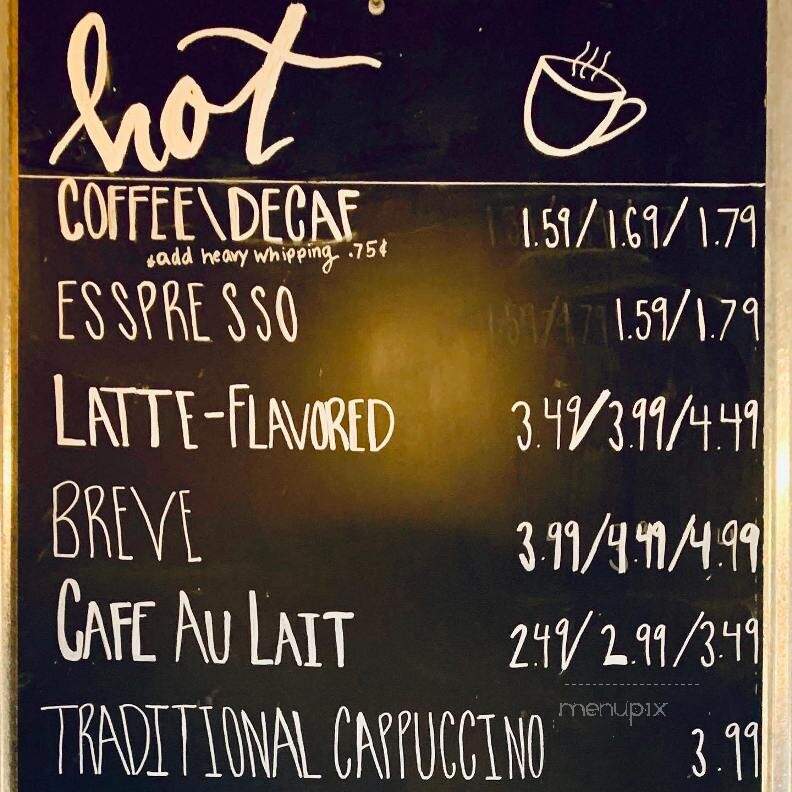 hot
COFFEE\DECAF 1.59/1.69/1.79
*add heavy whipping .75¢
ESSPRESSO 1.59/1.79
LATTE-FLAVORED 3.49/3.99/4.49
BREVE 3.99/4.49/4.99
CAFE AU LAIT 2.49/2.99/3.49
menupix
TRADITIONAL CAPPUCCINO 3.99